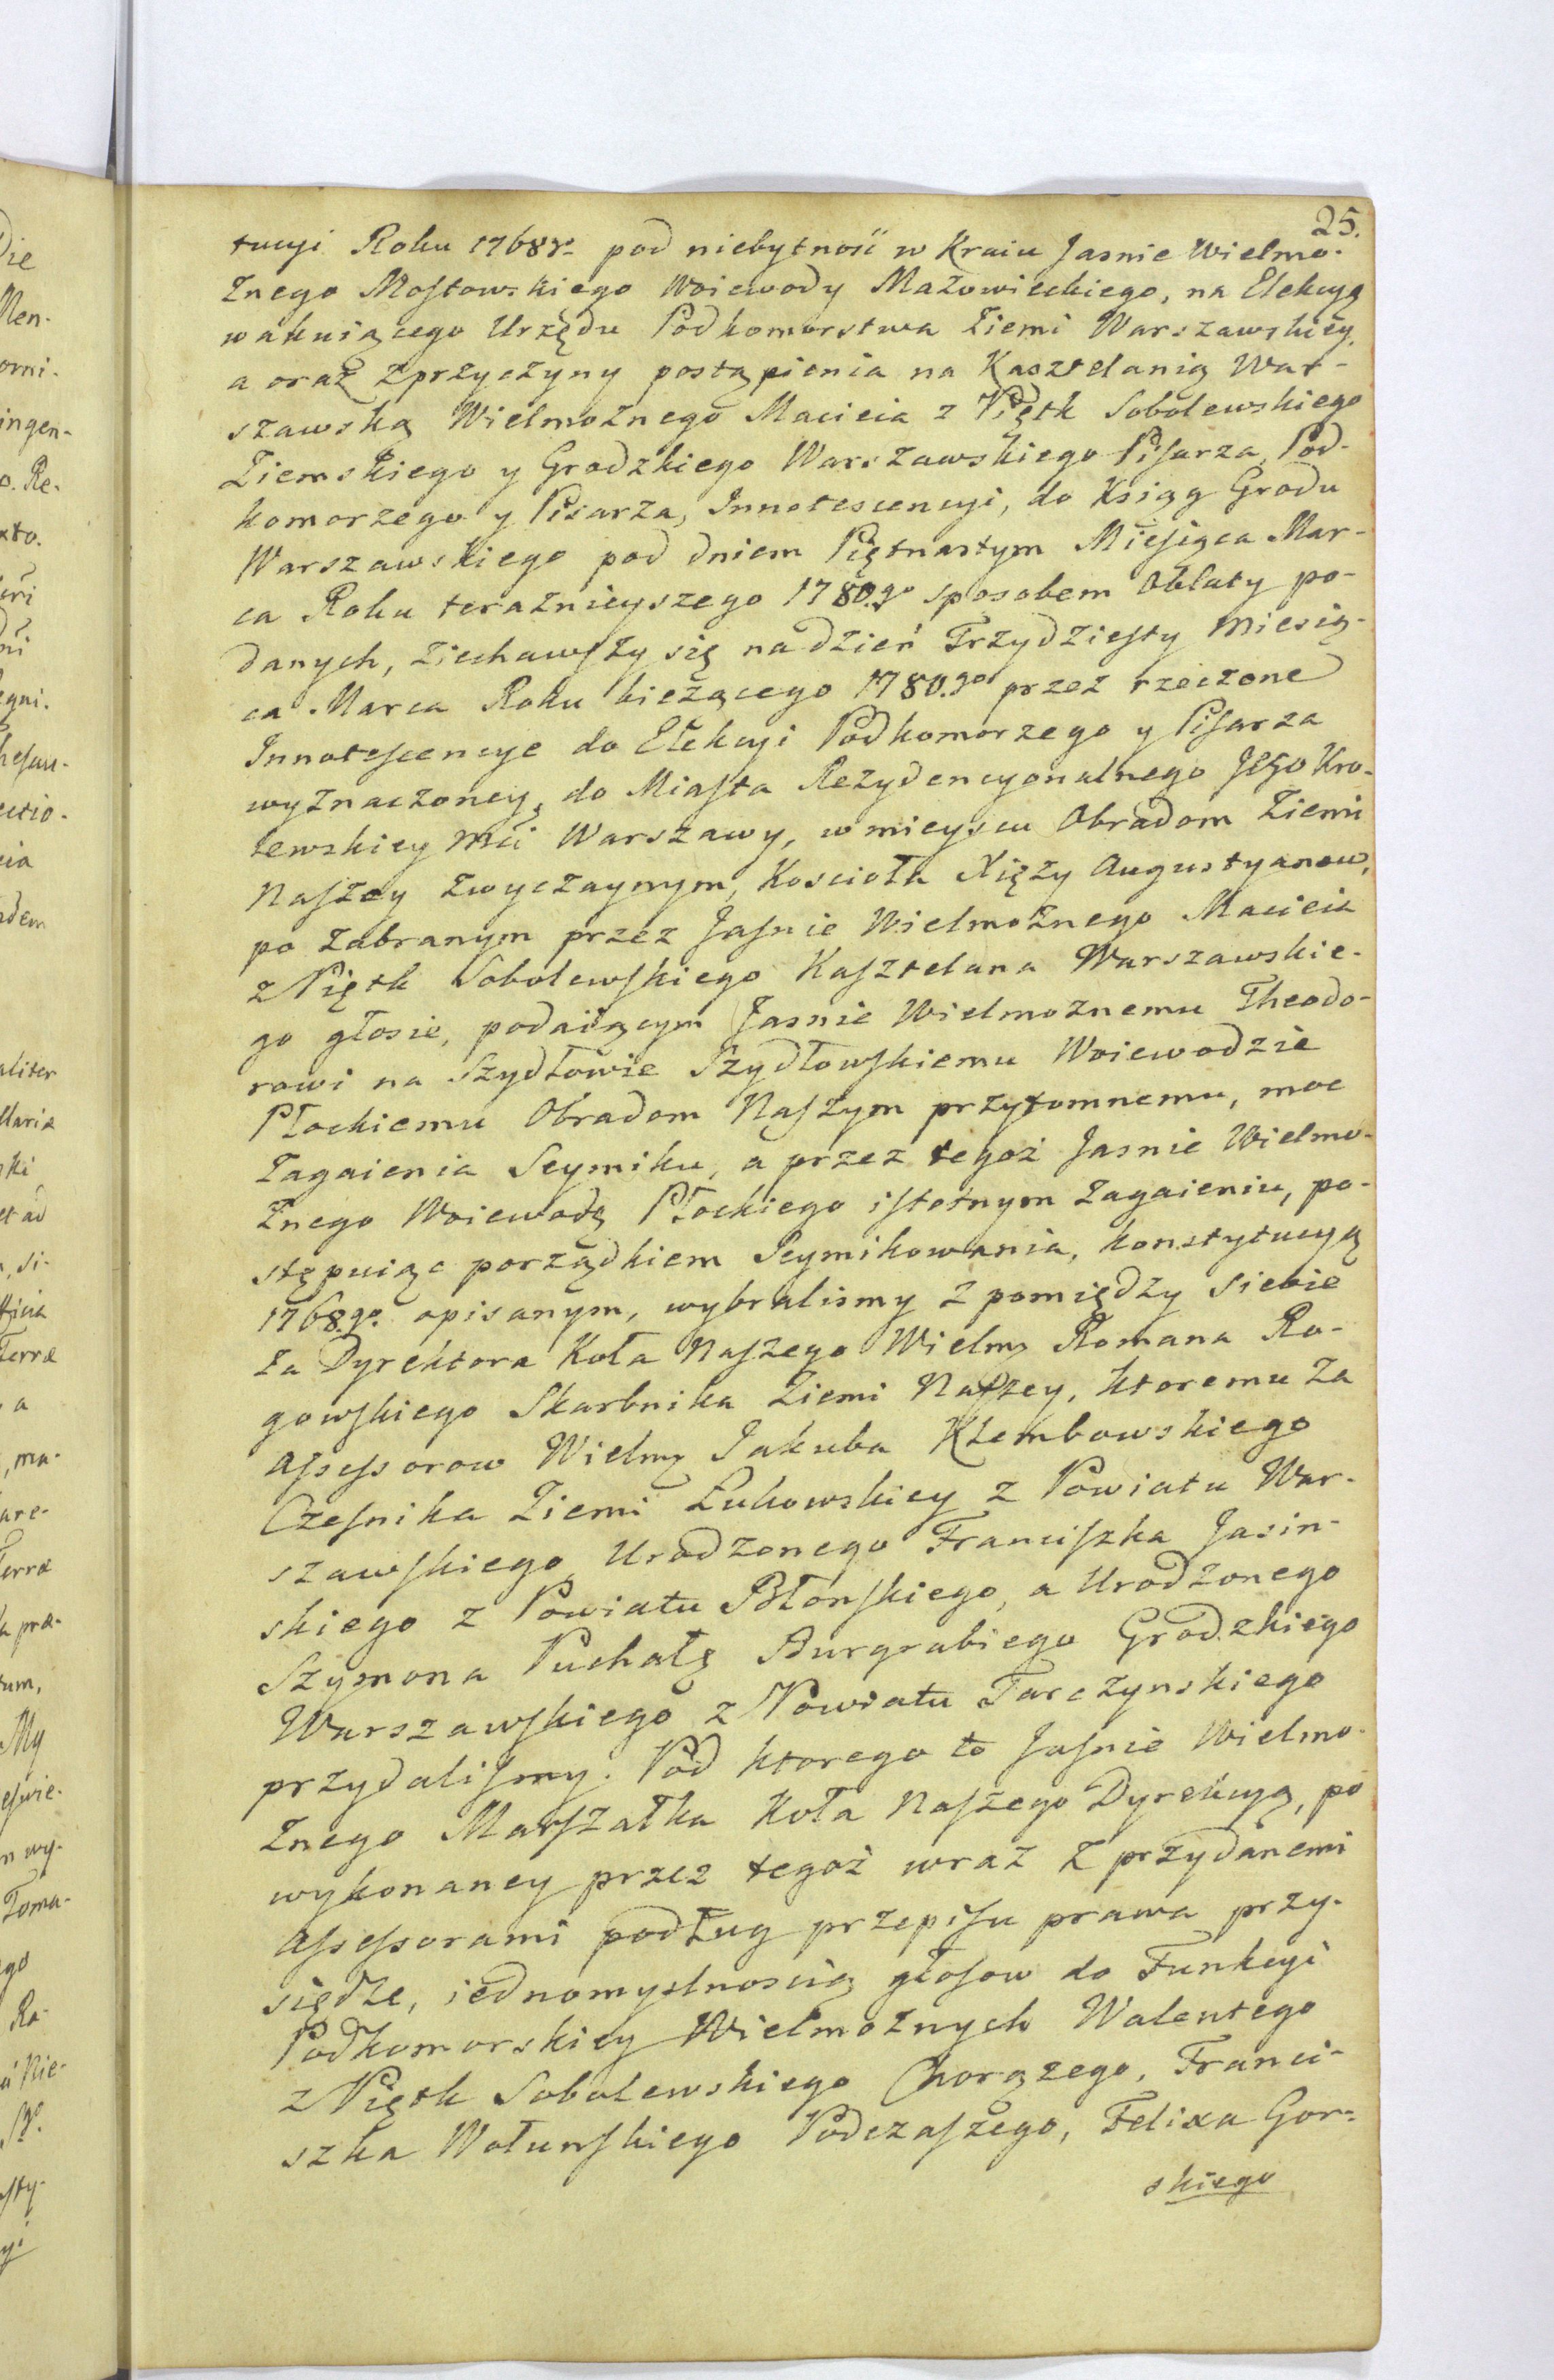 25.
tucyi Roku 1768º pod niebytność w Kraiu Jasnie Wielmo-
żnego Mostowskiego Woiewody Mazowieckiego, na Elekcyą
wakuiącego Urzędu Podkomorstwa Ziemi Warszawskiey,
a oraz z przyczyny postąpienia na Kasztelanią War-
szawską Wielmożnego Macieia z Piętk Sobolewskiego
Ziemskiego y Grodzkiego Warszawskiego Pisarza, Pod-
komorzego y Pisarza, Innotescencyi, do Ksiąg Grodu
Warszawskiego pod dniem Piętnastym Miesiąca Mar-
ca Roku teraznieyszego 1780.go sposobem Oblaty po-
danych, ziechawszy się na dzień Trzydziesty Miesią-
ca Marca Roku bieżącego 1780.go przez rzeczone
Innotescencye do Elekcyi Podkomorzego y Pisarza
wyznaczoney, do Miasta Rezydencyonalnego Jego Kro-
lewskiey Mci Warszawy, w mieyscu Obradom Ziemi
Naszey zwyczaynym, Koscioła Xięży Augustyanow,
po zabranym przez Jasnie Wielmożnego Macieia
z Piętk Sobolewskiego Kasztelana Warszawskie-
go głosie, podaiącym Jasnie Wielmożnemu Theodo-
rowi na Szydłowie Szydłowskiemu Woiewodzie
Płockiemu Obradom Naszym przytomnemu, moc
Zagaienia Seymiku, a przez tegoż Jasnie Wielmo-
żnego Woiewodę Płockiego istotnym Zagaieniu, po-
stępuiąc porządkiem Seymikowania, konstytucyą
1768.go opisanym, wybralismy z pomiędzy siebie
za Dyrektora Koła Naszego Wielmo Romana Ro-
gowskiego Skarbnika Ziemi Naszey, ktoremu za
Assessorow Wielmo Jakuba Klembowskiego
Czesnika Ziemi Łukowskiey z Powiatu War-
szawskiego, Urodzonego Franciszka Jasin-
skiego z Powiatu Błonskiego, a Urodzonego
Szymona Puchałę Burgrabiego Grodzkiego
Warszawskiego z Powiatu Tarczynskiego
przydalismy. Pod ktorego to Jasnie Wielmo-
żnego Marszałka Koła Naszego Dyrekcyą, po
wykonaney przez tegoż wraz z przydanemi
Assessorami podług przepisu prawa przy-
siędze, iednomyslnoscią głosow do Funkcyi
Podkomorskiey Wielmożnych Walentego
z Piętk Sobolewskiego Chorązego, Franci-
szka Wołunskiego Podczaszego, Felixa Gor-
skiego